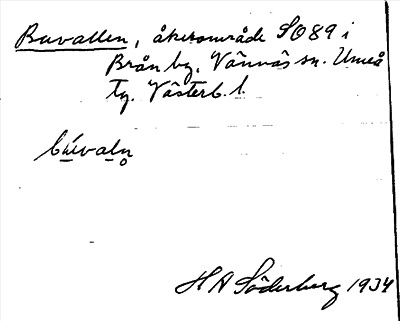 Buvallen, åkerområde SO89 i
Brån by, Vännäs sn. Umeå
tg. Västerb. l.
búvaln̥
H A Söderberg 1934